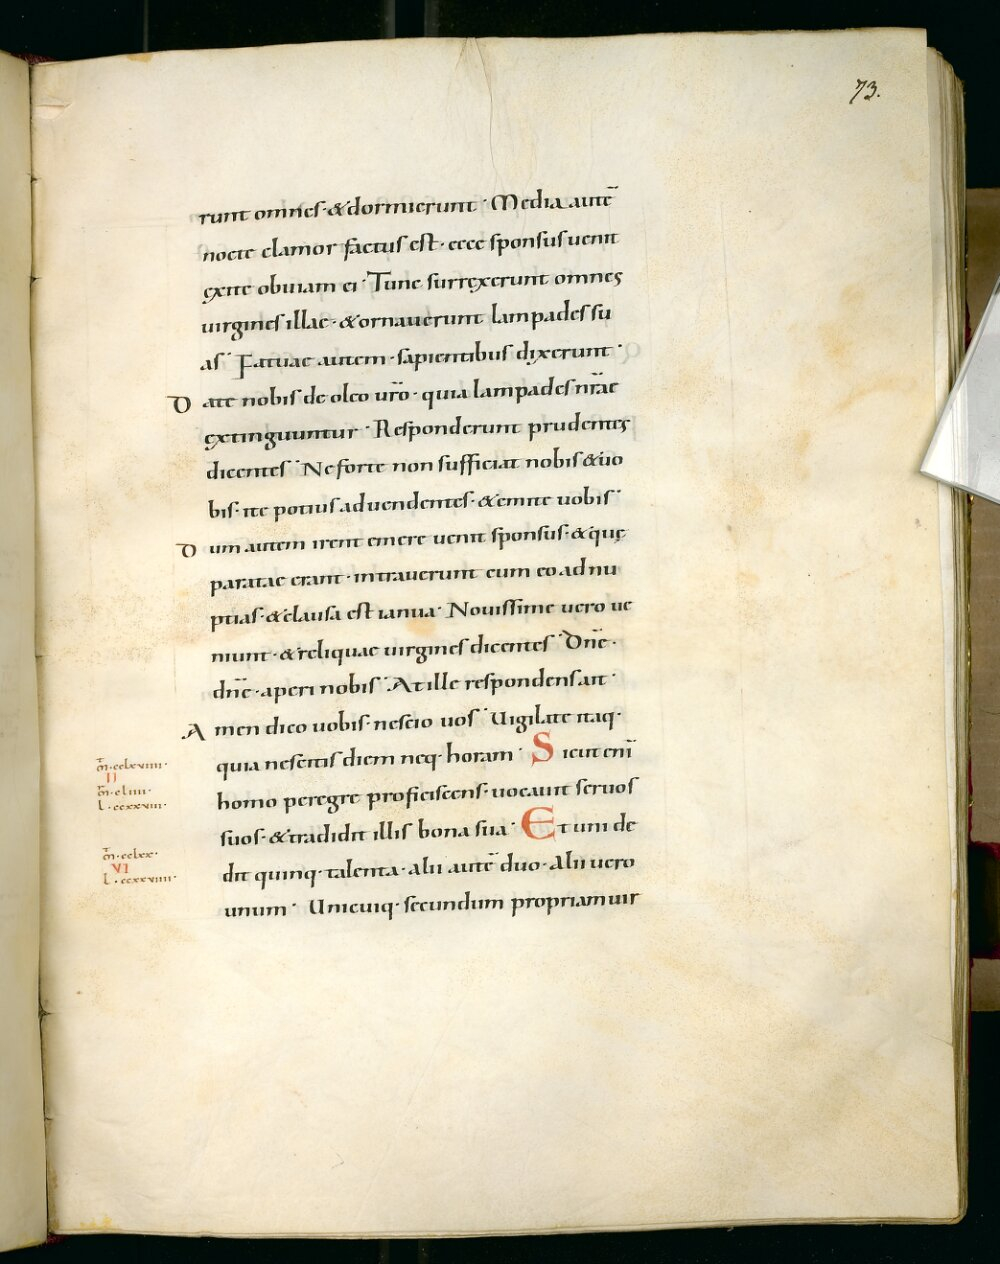 73.
runt omnes· &dormierunt· Media autē
nocte clamor factus est· ecce sponsus uenit
exite obuiam ei· Tunc surrexerunt omnes
uirgines illae· &ornauerunt lampades su
as· Fatuae autem· sapientibus dixerunt·
Date nobis de oleo uro̅· quia lampades nr̅ae
extinguuntur· Responderunt prudentes
dicentes· Ne forte non sufficiat nobis &uo
bis· ite potius ad uendentes· &emite uobis·
Dum autem irent emere uenit sponsus· &quę
paratae erant· intrauerunt cum eo ad nu
ptias· &clausa est ianua· Nouissime uero ue
niunt· &reliquae uirgines dicentes· Dn̅e·
dn̅e· aperi nobis· At ille respondens ait·
Amen dico uobis· nescio uos· Uigilate itaq·
quia nescitis diem neq· horam· Sicut enī
homo peregre proficiscens· uocauit seruos
suos· &tradidit illis bona sua· Et uni de
dit quinq· talenta· alii autē duo· Alii uero
unum· Unicuiq· secundum propriam uir
m̅· cclxviiii·
II
m̅· cliiii·
l· ccxxviii·
m̅· cclxx·
VI
l· ccxxviiii·